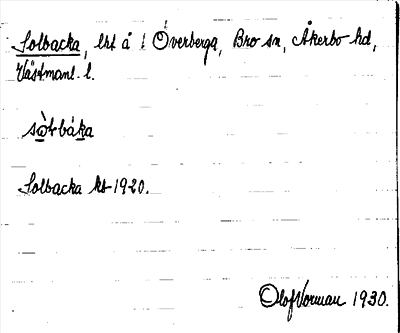 Solbacka, lht å 1 Överberga, Bro sn, Åkerbo hd,
Västmanl. l.
sòlbáka
Solbacka kb 1920.
Olof Norman 1930.